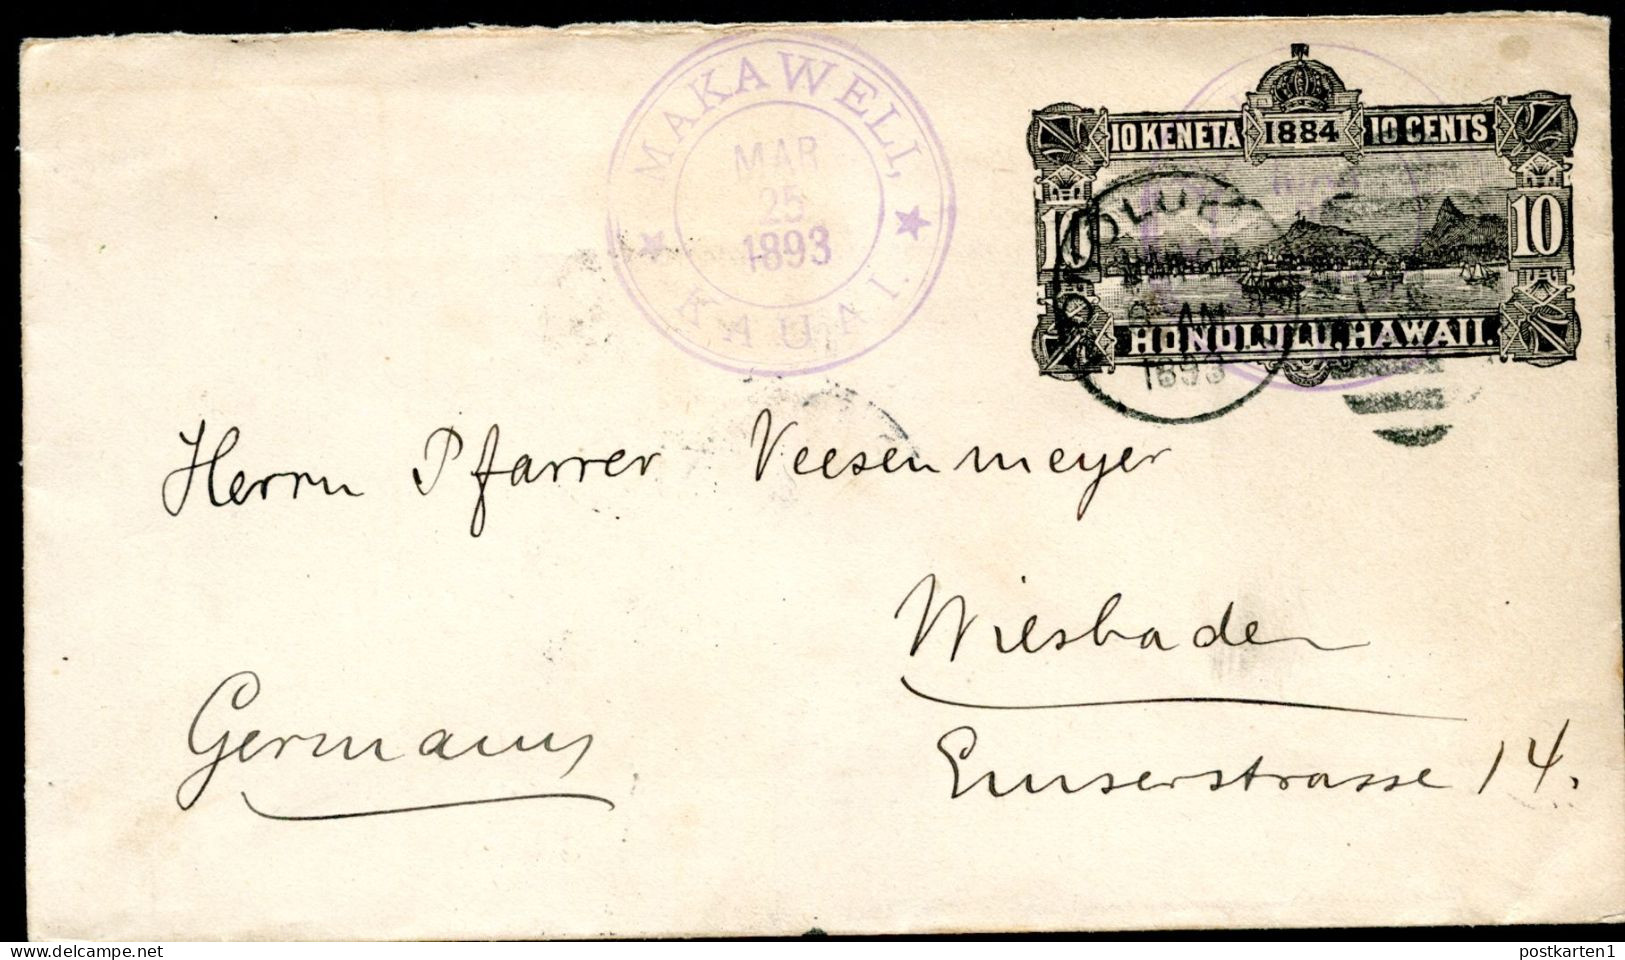 MAKAWELI,
MAR
25
1893
KAUAI.
10 KENETA 1884 10 CENTS
10 10
HONOLULU, HAWAII.
AM
1893
Herrn Pfarrer Veesenmeyer
Wiesbaden
Germany
Emserstrasse 14.
www.delcampe.net
postkarten1